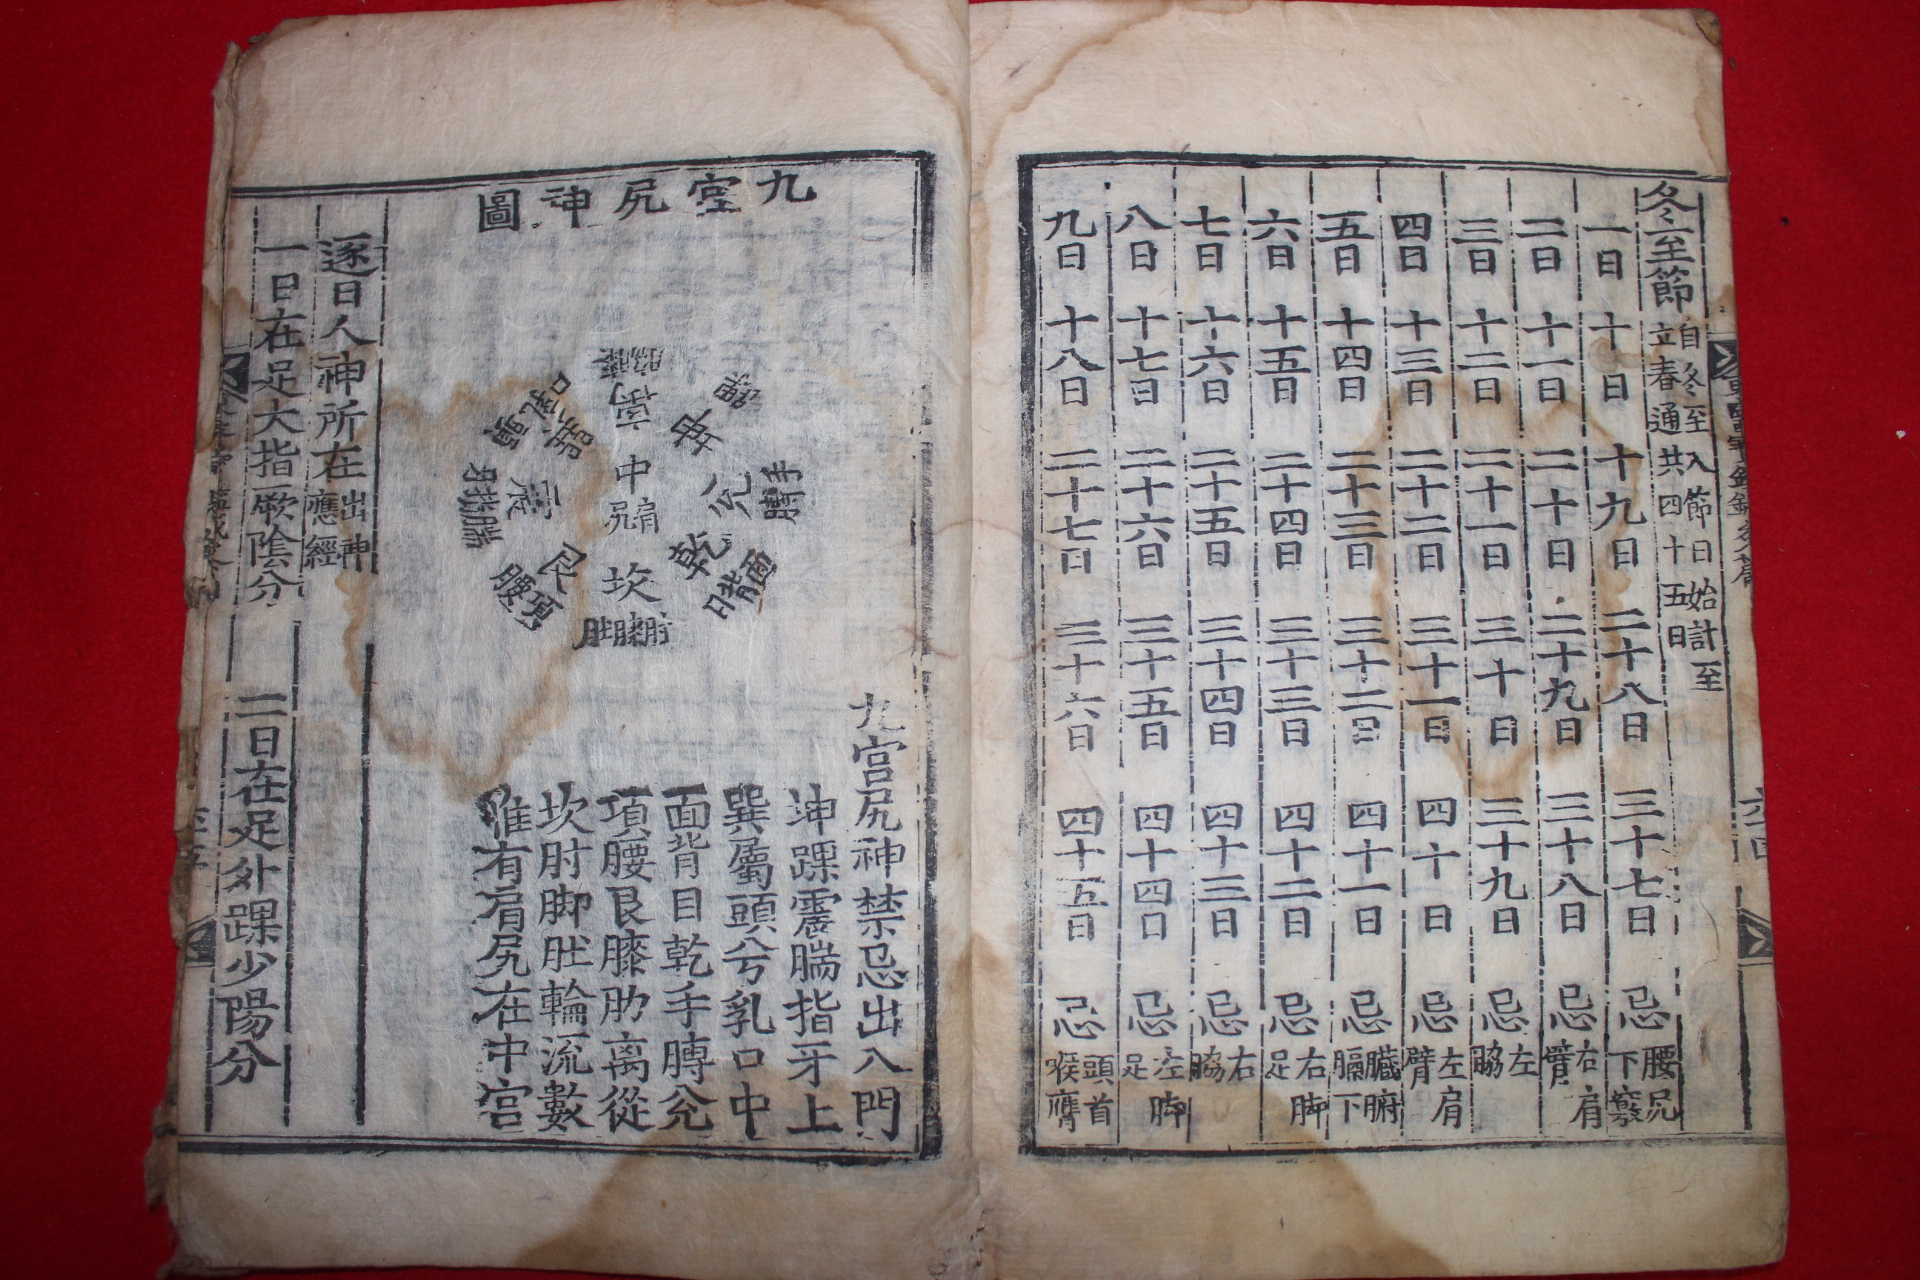 冬至節
自冬至入節日始計至
立春通共四十五日
一日 十日 十九日 二十八日 三十七日 忌 腰尻下竅
二日 十一日 二十日 二十九日 三十八日 忌 右肩臂
三日 十二日 二十一日 三十日 三十九日 忌 左脇
四日 十三日 二十二日 三十一日 四十日 忌 左肩臂
五日 十四日 二十三日 三十二日 四十一日 忌 臟腑膈下
六日 十五日 二十四日 三十三日 四十二日 忌 右脚足
七日 十六日 二十五日 三十四日 四十三日 忌 右脇
八日 十七日 二十六日 三十五日 四十四日 忌 左脚足
九日 十八日 二十七日 三十六日 四十五日 忌 頭首喉膺
九宮尻神圖
中
尻肩
坎
脚膁肘
艮
項腰
坤
踝
兌
手膊
乾
面背目
乳口
頭
九宮尻神禁忌出入門
坤踝震腨指牙上
巽屬頭兮乳口中
面背目乾手膊兌
項腰艮膝肋离從
坎肘脚肚輪流數
惟有肩尻在中宮
逐日人神所在
出神
應經
一日在足大指厥陰分
二日在足外踝少陽分